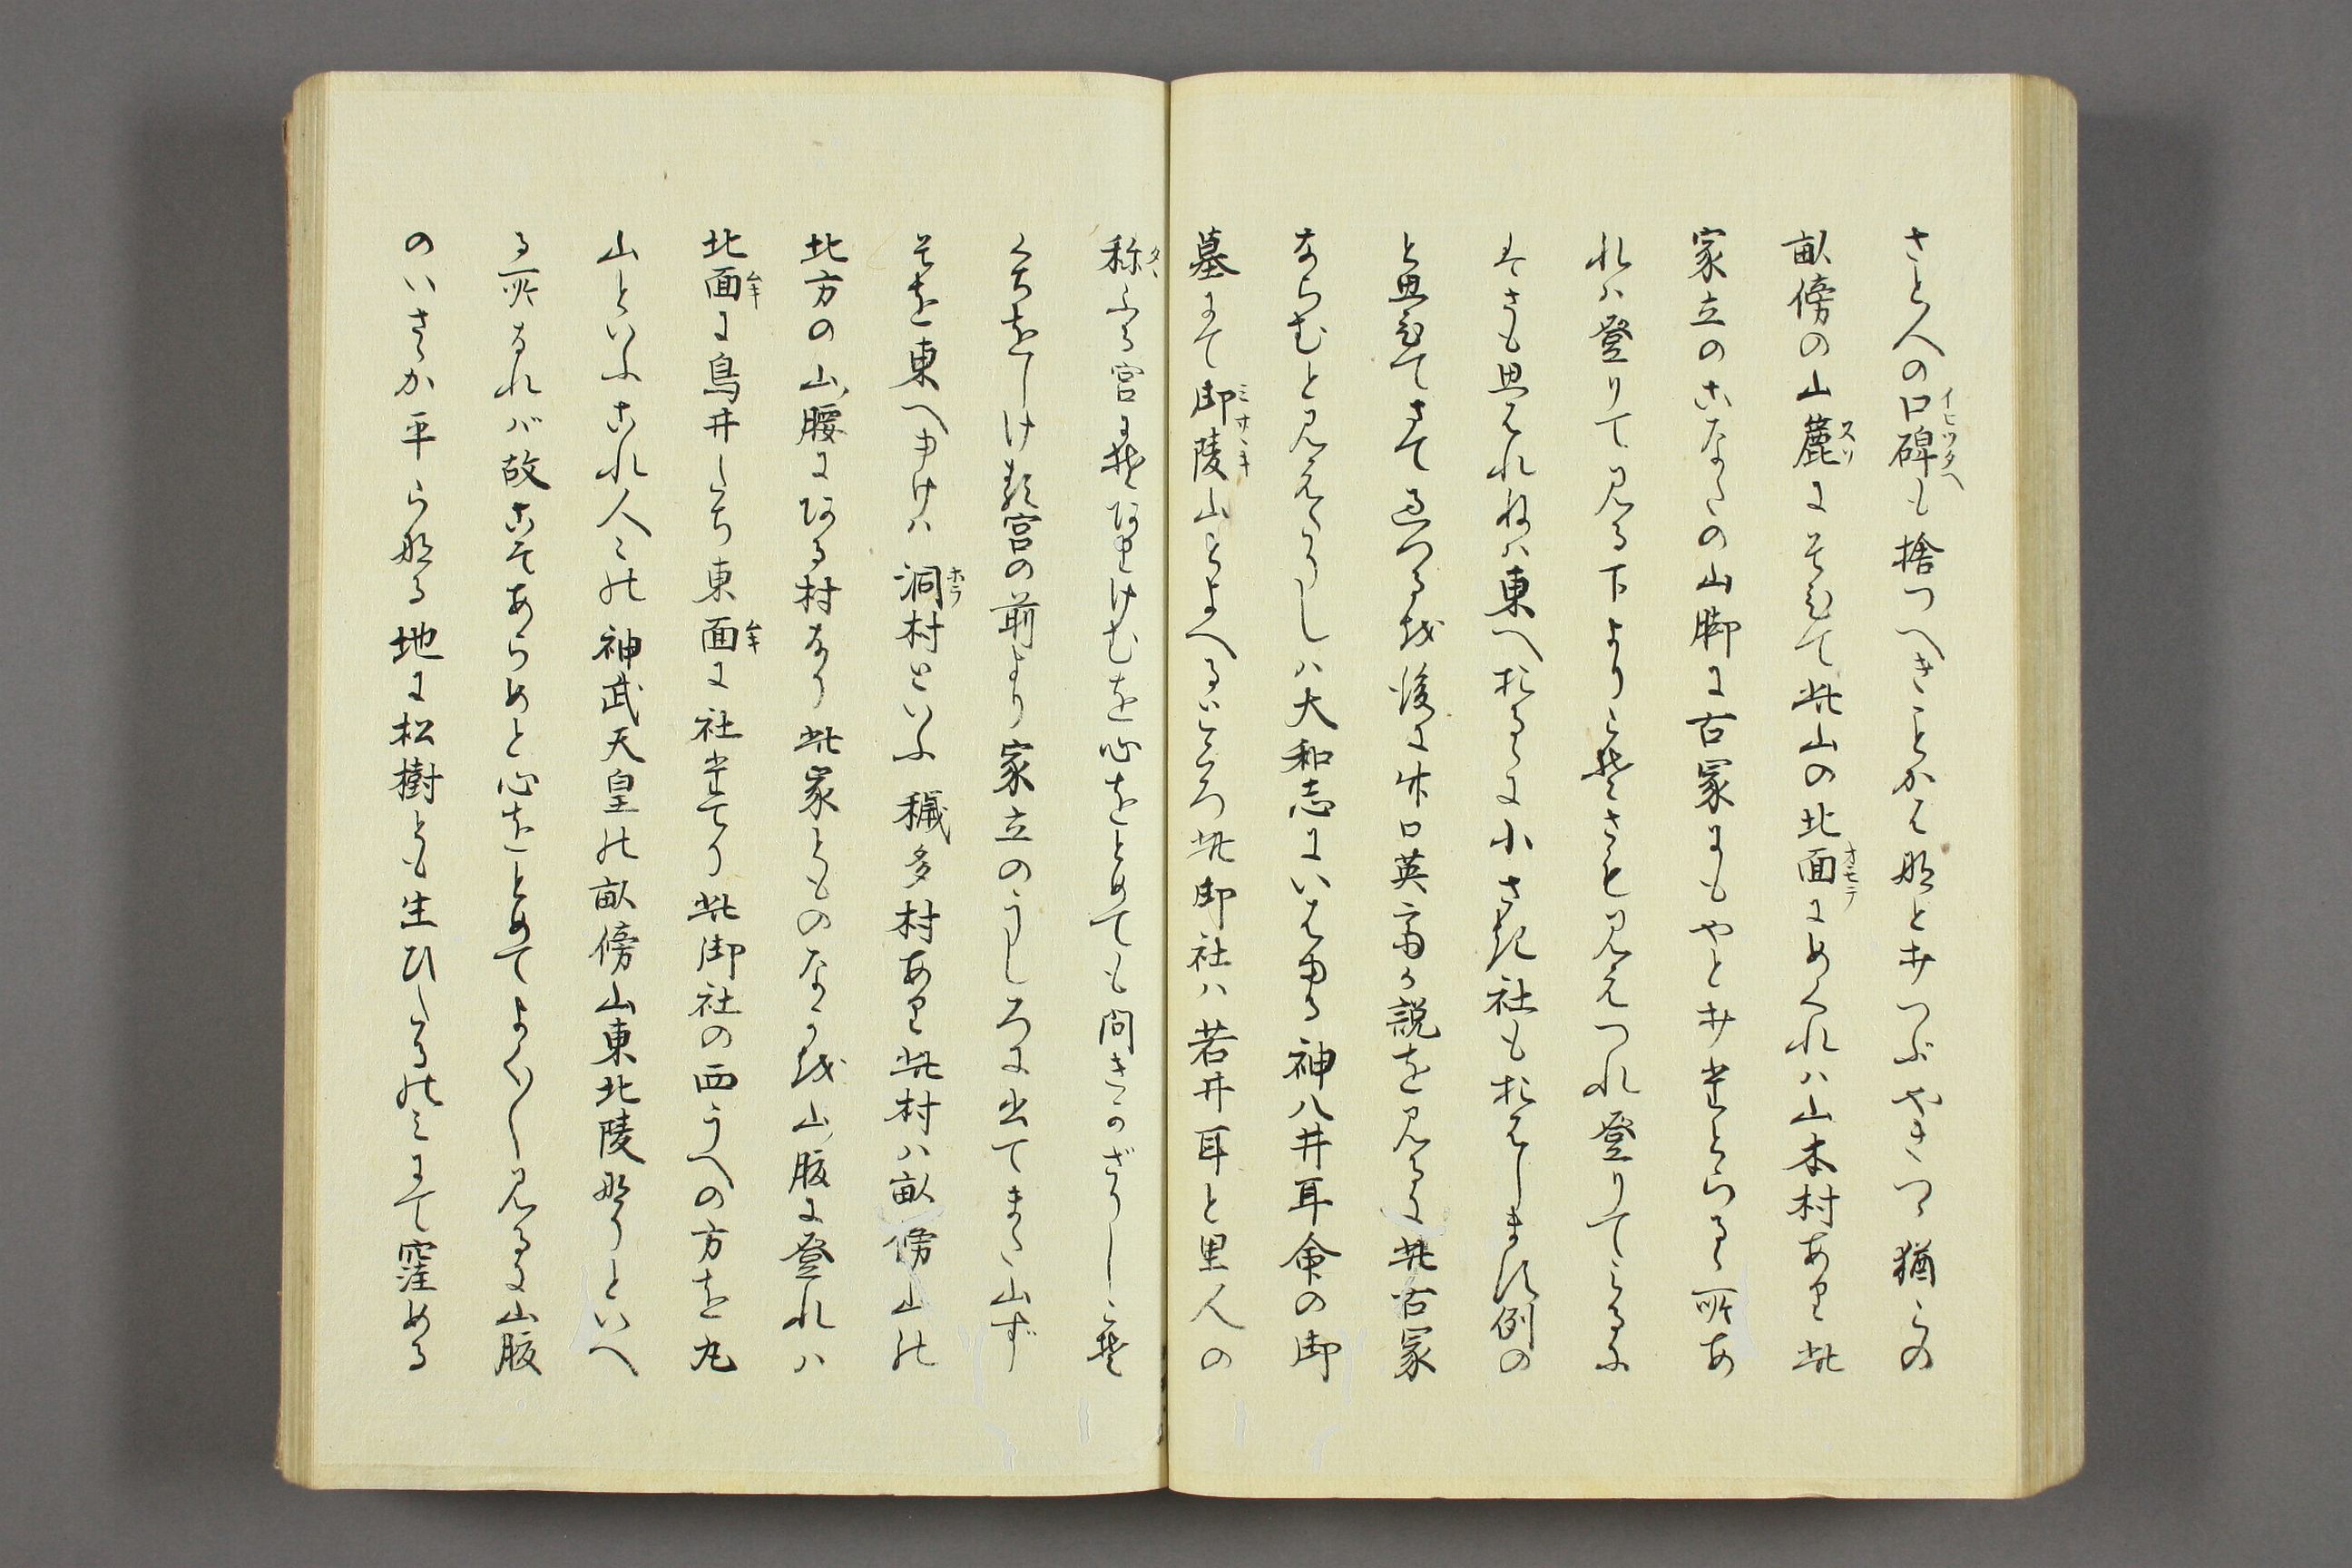 さと人の口碑も捨つへきことかは那とサつぶやきつゝ猶この
畝傍の山麓にそひて此山の北面にめくれハ山本村あり此
家立のこなたの山脚に古冢にもやとサ里とらるゝ所あ
れハ登りて見る下よりこそさも見えつれ登りてみるに
はさも思はれねハ東へおるゝに小さき社もおはします例の
と思ひてさて過つる越後に竹口英斎か説を見るに此古冢
ならむと見えたりしハ大和志にいはゆる神八井耳命の御
墓にて御陵山とよへるいところ此御社ハ若井耳と里人の
称ふる宮にそ阿りけむを心をとめても問きかざりしこそ
くちをしけ類宮の前より家立のうしろに出てまた山ず
そを東へゆけハ洞村といふ穢多村あり此村ハ畝傍山の
北方の山腰に阿る村なり此家とものなかを山腹に登れハ
北面に鳥井たち東面に社たてり此御社の西うへの方を丸
山といふこれ人々の神武天皇の畝傍山東北陵那りといへ
る所なれバ故こそあらめと心をとめてよく〳〵見るに山腹
のいさゝか平ら那る地に松樹とも生ひたるのミにて窪める